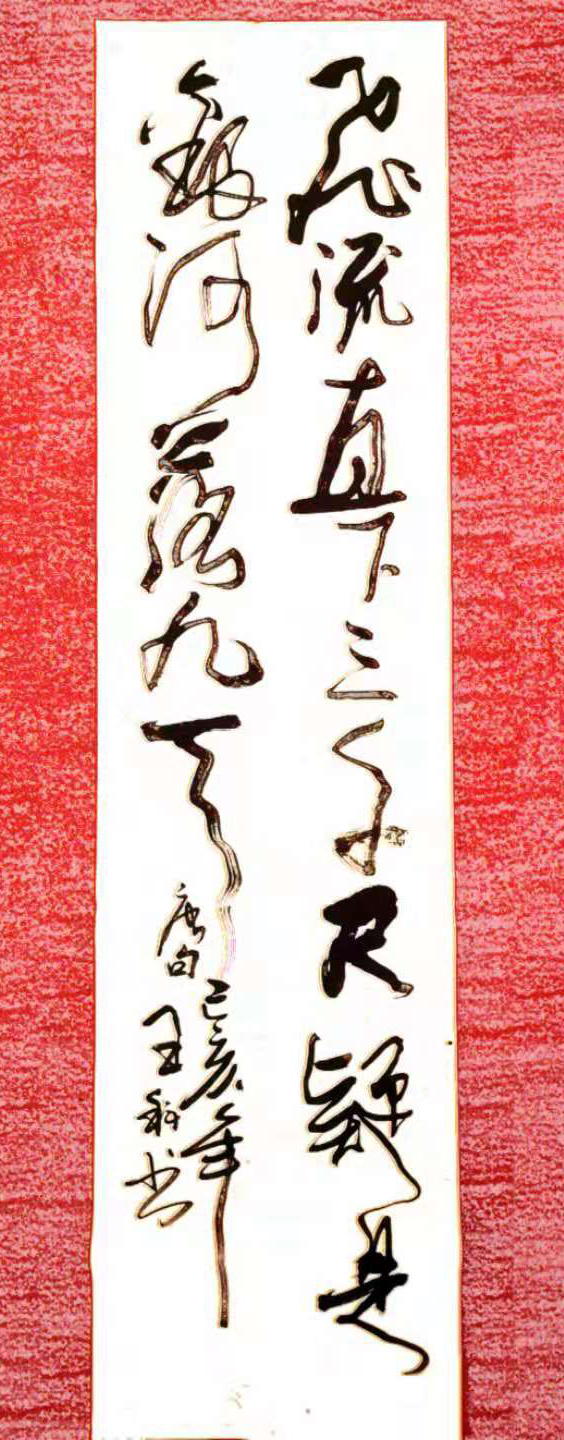 飛流直下三千尺疑是
銀河落九天
唐句
己亥年
王科书